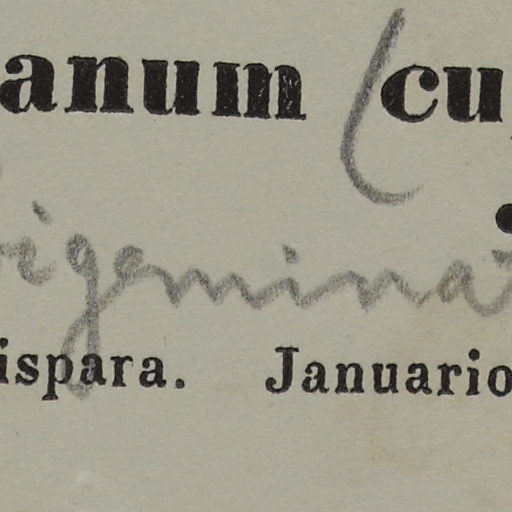 anum (cu
igemina
ispara. Januario